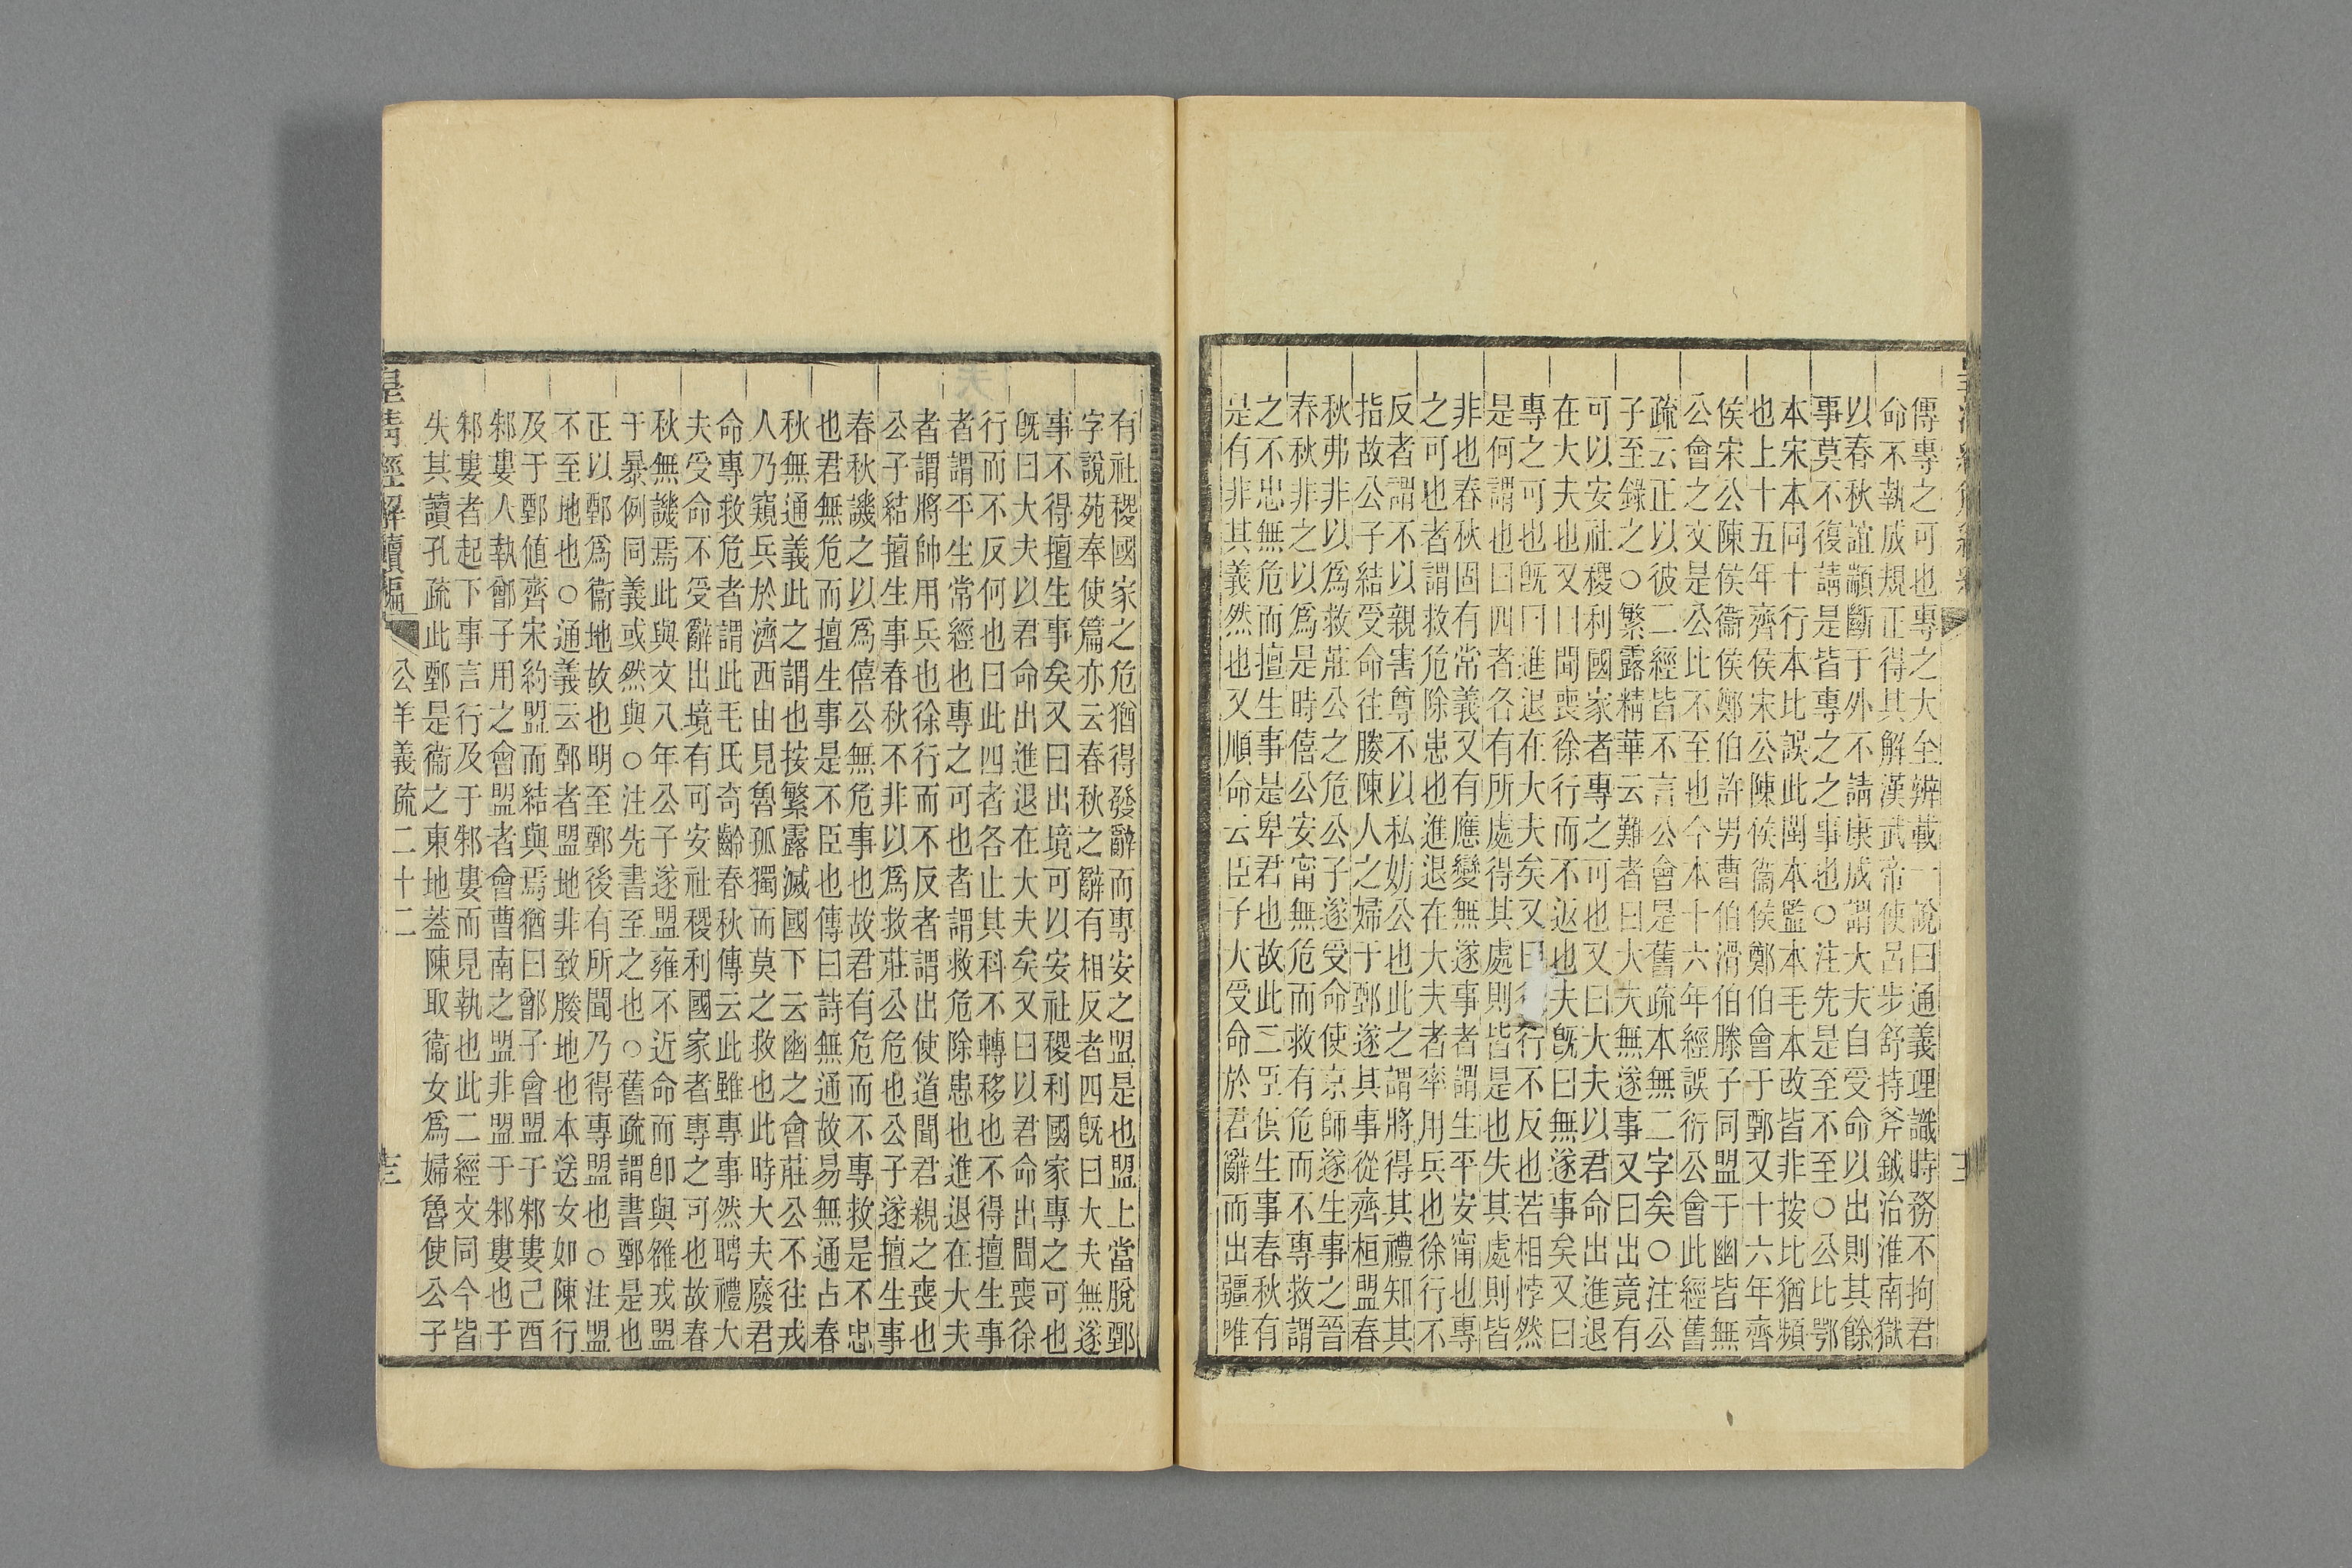 傳專之可也專之大全辨載一說曰通義理識時務不拘君
命不執成規正得其解漢武帝使呂步舒持斧鉞治淮南獄
以春秋誼顓斷于外不請康成謂大夫自受命以出則其餘
事莫不復請是皆專之之事也○注先是至不至○公比鄂
本宋本同十行本比誤此閩本監本毛本改皆非按比猶頻
也上十五年齊侯宋公陳侯衞侯鄭伯會于鄄又十六年齊
侯宋公陳侯衞侯鄭伯許男曹伯滑伯滕子同盟于幽皆無
公會之文是公比不至也今本十六年經誤衍公會此經舊
疏云正以彼二經皆不言公會是舊疏本無二字矣○注公
子至錄之○繁露精華云難者曰大夫無遂事又曰出竟有
可以安社稷利國家者專之可也又曰大夫以君命出進退
在大夫也又曰聞喪徐行而不返也夫既曰無遂事矣又曰
專之可也既曰進退在大夫矣又曰徐行不反也若相悖然
是何謂也曰四者各有所處得其處則皆是也失其處則皆
非也春秋固有常義又有應變無遂事者謂生平安甯也專
之可也者謂救危除患也進退在大夫者率用兵也徐行不
反者謂不以親害尊不以私妨公也此之謂將得其禮知其
指故公子結受命往媵陳人之婦于鄄遂其事從齊桓盟春
秋弗非以爲救莊公之危公子遂受命使京師遂生事之晉
春秋非之以爲是時僖公安甯無危而救有危而不專救謂
之不忠無危而擅生事是卑君也故此二臣俱生事春秋有
是有非其義然也又順命云臣子大受命於君辭而出疆唯
有社稷國家之危猶得發辭而專安之盟是也盟上當脫鄄
字說苑奉使篇亦云春秋之辭有相反者四既曰大夫無遂
事不得擅生事矣又曰出境可以安社稷利國家專之可也
既曰大夫以君命出進退在大夫矣又曰以君命出聞喪徐
行而不反何也曰此四者各止其科不轉移也不得擅生事
者謂平生常經也專之可也者謂救危除患也進退在大夫
者謂將帥用兵也徐行而不反者謂出使道聞君親之喪也
公子結擅生事春秋不非以爲救莊公危也公子遂擅生事
春秋譏之以爲僖公無危事也故君有危而不專救是不忠
也君無危而擅生事是不臣也傳曰詩無通故易無通占春
秋無通義此之謂也按繁露滅國下云幽之會莊公不往戎
人乃窺兵於濟西由見魯孤獨而莫之救也此時大夫廢君
命專救危者謂此毛氏奇齡春秋傳云此雖專事然聘禮大
夫受命不受辭出境有可安社稷利國家者專之可也故春
秋無譏焉此與文八年公子遂盟雍不近命而卽與雒戎盟
于暴例同義或然與○注先書至之也○舊疏謂書鄄是也
正以鄄爲衞地故也明至鄄後有所聞乃得專盟也○注盟
不至地也○通義云鄄者盟地非致媵地也本送女如陳行
及于鄄値齊宋約盟而結與焉猶曰鄫子會盟于邾婁己酉
邾婁人執鄫子用之會盟者會曹南之盟非盟于邾婁也于
邾婁者起下事言行及于邾婁而見執也此二經文同今皆
失其讀孔疏此鄄是衞之東地蓋陳取衞女爲婦魯使公子
皇淸經解續編
公羊義疏二十二